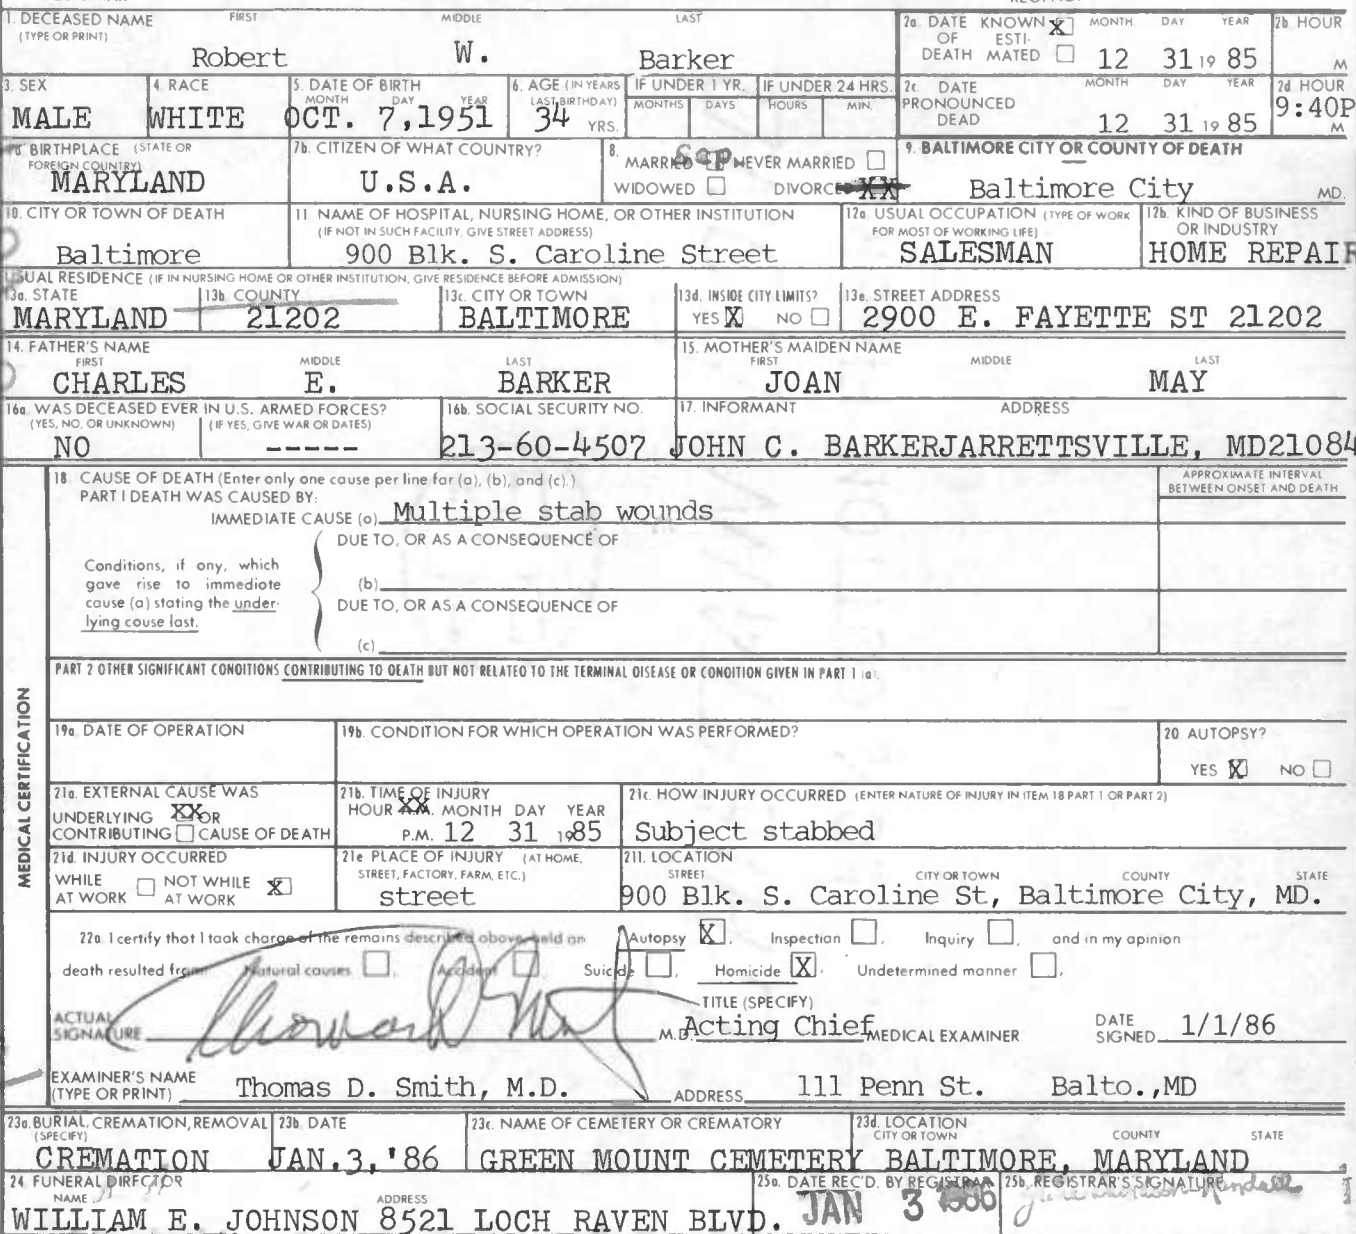 1. DECEASED NAME FIRST MIDDLE LAST
(TYPE OR PRINT)
Robert W. Barker
2a. DATE OF DEATH KNOWN X ESTIMATED MONTH DAY YEAR
12 31 19 85
2b HOUR M
3. SEX
MALE
4. RACE
WHITE
5. DATE OF BIRTH
MONTH DAY YEAR
OCT. 7,1951
6. AGE (IN YEARS LAST BIRTHDAY)
34 YRS.
IF UNDER 1 YR. IF UNDER 24 HRS.
MONTHS DAYS HOURS MIN.
2c. DATE PRONOUNCED DEAD MONTH DAY YEAR
12 31 19 85
2d HOUR
9:40P M
BIRTHPLACE (STATE OR FOREIGN COUNTRY)
MARYLAND
7b. CITIZEN OF WHAT COUNTRY?
U.S.A.
8. MARRIED Sep NEVER MARRIED
WIDOWED DIVORCED XX
9. BALTIMORE CITY OR COUNTY OF DEATH
Baltimore City MD.
10. CITY OR TOWN OF DEATH
Baltimore
11 NAME OF HOSPITAL, NURSING HOME, OR OTHER INSTITUTION
(IF NOT IN SUCH FACILITY, GIVE STREET ADDRESS)
900 Blk. S. Caroline Street
12a USUAL OCCUPATION (TYPE OF WORK FOR MOST OF WORKING LIFE)
SALESMAN
12b. KIND OF BUSINESS OR INDUSTRY
HOME REPAIR
USUAL RESIDENCE (IF IN NURSING HOME OR OTHER INSTITUTION, GIVE RESIDENCE BEFORE ADMISSION)
13a. STATE
MARYLAND
13b COUNTY
21202
13c. CITY OR TOWN
BALTIMORE
13d. INSIDE CITY LIMITS?
YES X NO
13e. STREET ADDRESS
2900 E. FAYETTE ST 21202
14. FATHER'S NAME
FIRST MIDDLE LAST
CHARLES E. BARKER
15. MOTHER'S MAIDEN NAME
FIRST MIDDLE LAST
JOAN MAY
16a WAS DECEASED EVER IN U.S. ARMED FORCES?
(YES, NO, OR UNKNOWN) (IF YES, GIVE WAR OR DATES)
NO -----
16b. SOCIAL SECURITY NO.
213-60-4507
17. INFORMANT ADDRESS
JOHN C. BARKERJARRETTSVILLE, MD21084
MEDICAL CERTIFICATION
18 CAUSE OF DEATH (Enter only one cause per line for (a), (b), and (c).)
PART I DEATH WAS CAUSED BY:
IMMEDIATE CAUSE (a) Multiple stab wounds
APPROXIMATE INTERVAL BETWEEN ONSET AND DEATH
DUE TO, OR AS A CONSEQUENCE OF
Conditions, if any, which gave rise to immediate cause (a) stating the underlying cause last.
(b)
DUE TO, OR AS A CONSEQUENCE OF
(c)
PART 2 OTHER SIGNIFICANT CONDITIONS CONTRIBUTING TO DEATH BUT NOT RELATED TO THE TERMINAL DISEASE OR CONDITION GIVEN IN PART 1 (a).
19a DATE OF OPERATION
19b. CONDITION FOR WHICH OPERATION WAS PERFORMED?
20 AUTOPSY?
YES X NO
21a. EXTERNAL CAUSE WAS
UNDERLYING XX OR
CONTRIBUTING CAUSE OF DEATH
21b. TIME OF INJURY
HOUR A.M. MONTH DAY YEAR
P.M. 12 31 1985
21c. HOW INJURY OCCURRED (ENTER NATURE OF INJURY IN ITEM 18 PART 1 OR PART 2)
Subject stabbed
21d. INJURY OCCURRED
WHILE AT WORK NOT WHILE AT WORK X
21e PLACE OF INJURY (AT HOME, STREET, FACTORY, FARM, ETC.)
street
21f. LOCATION
STREET CITY OR TOWN COUNTY STATE
900 Blk. S. Caroline St, Baltimore City, MD.
22a. I certify that I took charge of the remains described above, held an Autopsy X, Inspection, Inquiry, and in my opinion
death resulted from Natural causes, Accident, Suicide, Homicide X, Undetermined manner.
ACTUAL SIGNATURE M.D.
TITLE (SPECIFY)
Acting Chief MEDICAL EXAMINER
DATE SIGNED 1/1/86
EXAMINER'S NAME (TYPE OR PRINT) Thomas D. Smith, M.D.
ADDRESS 111 Penn St. Balto.,MD
23a. BURIAL, CREMATION, REMOVAL (SPECIFY)
CREMATION
23b DATE
JAN.3,'86
23c. NAME OF CEMETERY OR CREMATORY
GREEN MOUNT CEMETERY
23d. LOCATION
CITY OR TOWN COUNTY STATE
BALTIMORE, MARYLAND
24 FUNERAL DIRECTOR
NAME ADDRESS
WILLIAM E. JOHNSON 8521 LOCH RAVEN BLVD.
25a. DATE REC'D. BY REGISTRAR
JAN 3 1986
25b. REGISTRAR'S SIGNATURE